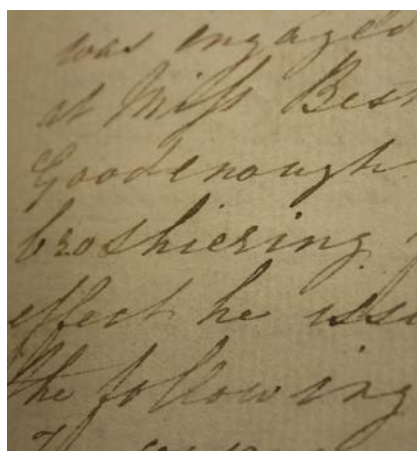 was engaged
at Miss Best
Goodenough
broshiering
effect he issu
the following